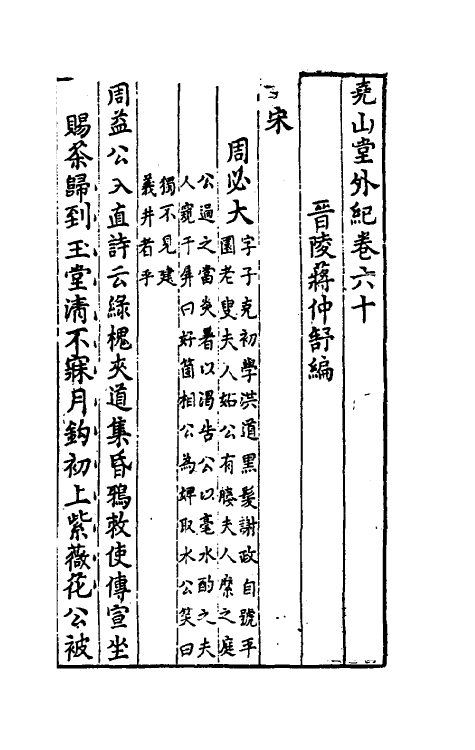 堯山堂外紀卷六十
晋陵蔣仲舒編
宋
周必大字子克初學洪道黑髮謝政自號平
園老叟夫人妬公有媵夫人縻之庭
公過之當炎暑以渴告公以毫水酌之夫
人窺于屏曰好箇相公為婢取水公笑曰
獨不見建
義井者乎
周益公入直詩云綠槐夾道集昏鴉敕使傳宣坐
賜茶歸到玉堂清不寐月鈎初上紫薇花公被